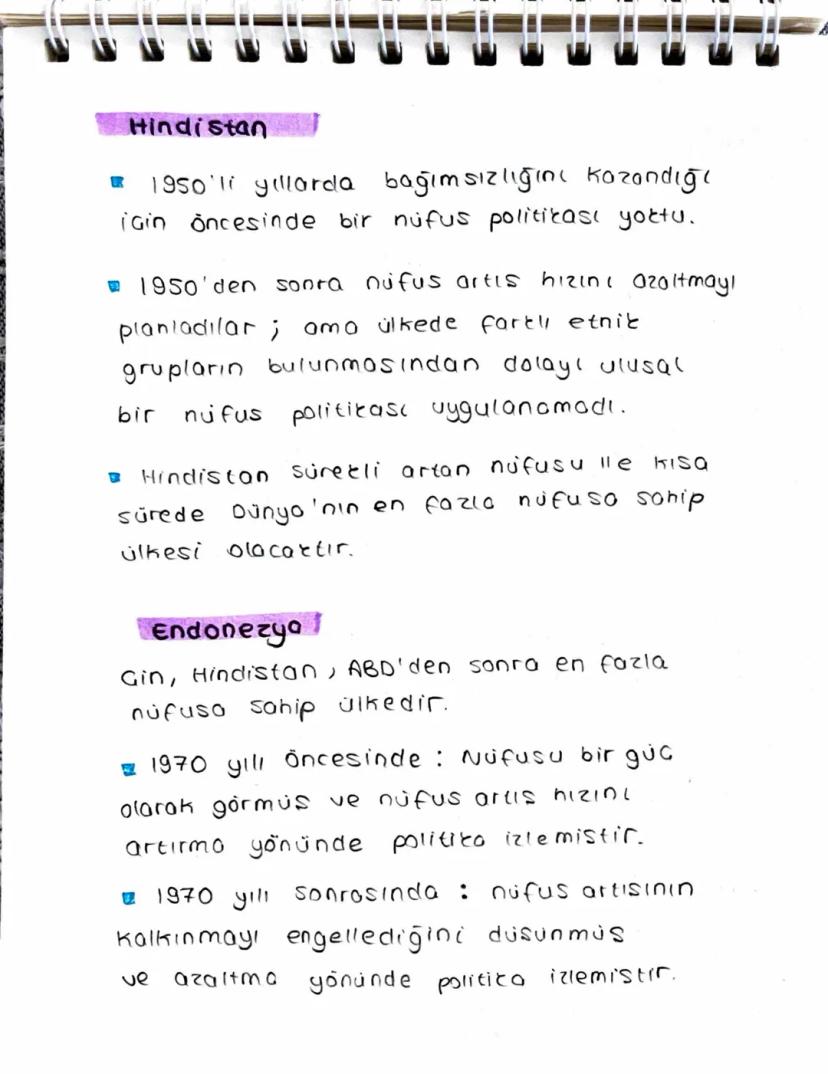 Hindistan
1950'li yıllarda bağımsızlığını kazandığı
için öncesinde bir nüfus politikası yoktu.
1950'den sonra nüfus artış hızını azaltmayı
planladılar ; ama ülkede farklı etnik
grupların bulunmasından dolayı ulusal
bir nüfus politikası uygulanamadı.
Hindistan sürekli artan nüfusu ile kısa
sürede Dünya'nın en fazla nüfusa sahip
ülkesi olacaktır.
Endonezya
Çin, Hindistan, ABD'den sonra en fazla
nüfusa sahip ülkedir.
1970 yılı öncesinde : Nüfusu bir güç
olarak görmüş ve nüfus artış hızını
artırma yönünde politika izlemiştir.
1970 yılı sonrasında : nüfus artışının
kalkınmayı engellediğini düşünmüş
ve azaltma yönünde politika izlemiştir.